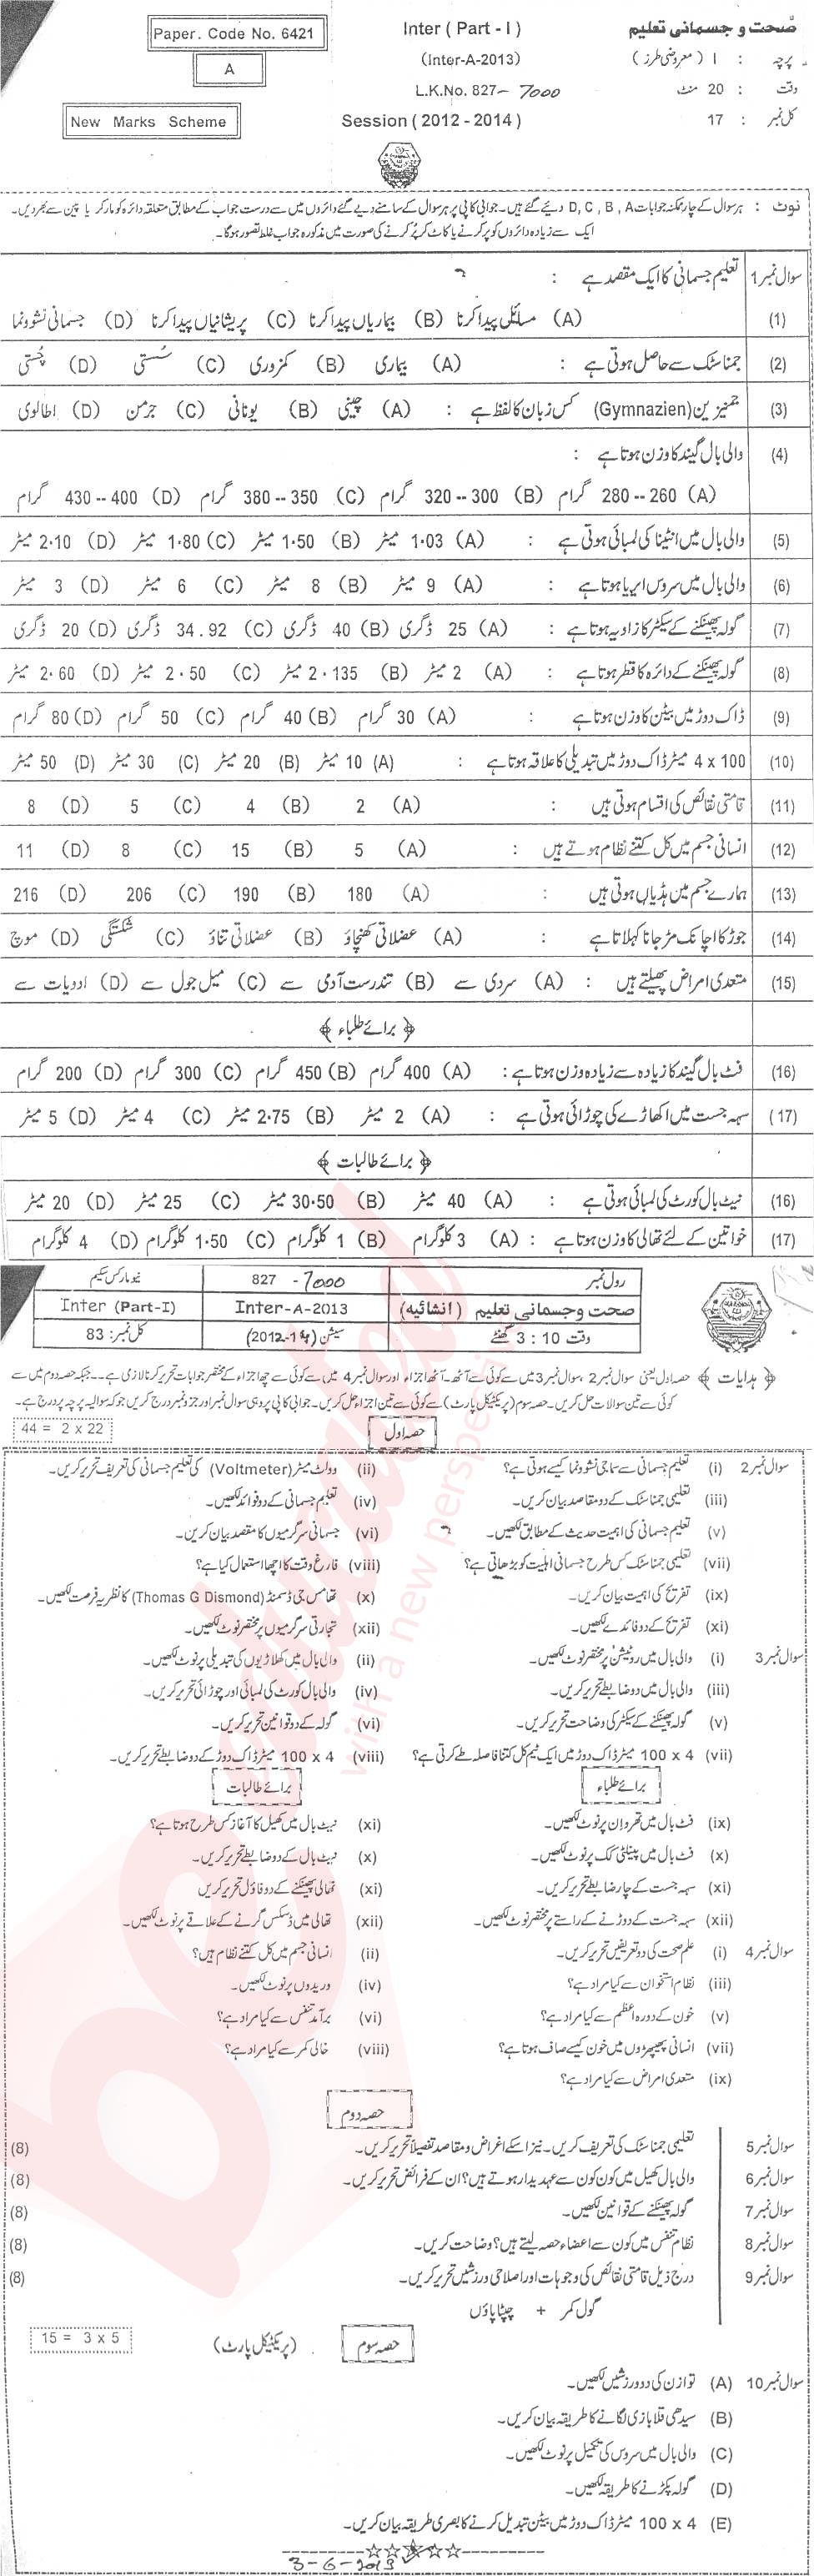 Paper. Code No. 6421 Inter ( Part - I ) صحت و جسمانی تعلیم
A (Inter-A-2013) پرچہ : I ( معروضی طرز )
L.K.No. 827- 7000 وقت : 20 منٹ
New Marks Scheme Session ( 2012 - 2014 ) کل نمبر : 17
نوٹ : ہر سوال کے چار ممکنہ جوابات D, C, B, A دیئے گئے ہیں۔ جوابی کاپی پر ہر سوال کے سامنے دیے گئے دائروں میں سے درست جواب کے مطابق متعلقہ دائرہ کو مارکر یا پین سے بھر دیں۔
ایک سے زیادہ دائروں کو پُر کرنے یا کاٹ کر پُر کرنے کی صورت میں مذکورہ جواب غلط تصور ہوگا۔
سوال نمبر 1 تعلیم جسمانی کا ایک مقصد ہے :
(1) (A) مسائل پیدا کرنا (B) بیماریاں پیدا کرنا (C) پریشانیاں پیدا کرنا (D) جسمانی نشوونما
(2) جمناسٹک سے حاصل ہوتی ہے : (A) بیماری (B) کمزوری (C) سُستی (D) چُستی
(3) جمنیزین (Gymnazien) کس زبان کا لفظ ہے : (A) چینی (B) یونانی (C) جرمن (D) اطالوی
(4) والی بال گیند کا وزن ہوتا ہے :
(A) 260 -- 280 گرام (B) 300 -- 320 گرام (C) 350 -- 380 گرام (D) 400 -- 430 گرام
(5) والی بال میں انٹینا کی لمبائی ہوتی ہے : (A) 1.03 میٹر (B) 1.50 میٹر (C) 1.80 میٹر (D) 2.10 میٹر
(6) والی بال میں سروس ایریا ہوتا ہے : (A) 9 میٹر (B) 8 میٹر (C) 6 میٹر (D) 3 میٹر
(7) گولہ پھینکنے کے سیکٹر کا زاویہ ہوتا ہے : (A) 25 ڈگری (B) 40 ڈگری (C) 34.92 ڈگری (D) 20 ڈگری
(8) گولہ پھینکنے کے دائرہ کا قطر ہوتا ہے : (A) 2 میٹر (B) 2.135 میٹر (C) 2.50 میٹر (D) 2.60 میٹر
(9) ڈاک دوڑ میں بیٹن کا وزن ہوتا ہے : (A) 30 گرام (B) 40 گرام (C) 50 گرام (D) 80 گرام
(10) 4 x 100 میٹر ڈاک دوڑ میں تبدیلی کا علاقہ ہوتا ہے : (A) 10 میٹر (B) 20 میٹر (C) 30 میٹر (D) 50 میٹر
(11) قامتی نقائص کی اقسام ہوتی ہیں : (A) 2 (B) 4 (C) 5 (D) 8
(12) انسانی جسم میں کل کتنے نظام ہوتے ہیں : (A) 5 (B) 15 (C) 8 (D) 11
(13) ہمارے جسم میں ہڈیاں ہوتی ہیں : (A) 180 (B) 190 (C) 206 (D) 216
(14) جوڑ کا اچانک مڑ جانا کہلاتا ہے : (A) عضلاتی کھنچاؤ (B) عضلاتی تناؤ (C) شکستگی (D) موچ
(15) متعدی امراض پھیلتے ہیں : (A) سردی سے (B) تندرست آدمی سے (C) میل جول سے (D) ادویات سے
﴿ برائے طلباء ﴾
(16) فٹ بال گیند کا زیادہ سے زیادہ وزن ہوتا ہے : (A) 400 گرام (B) 450 گرام (C) 300 گرام (D) 200 گرام
(17) سہ جست میں اکھاڑے کی چوڑائی ہوتی ہے : (A) 2 میٹر (B) 2.75 میٹر (C) 4 میٹر (D) 5 میٹر
﴿ برائے طالبات ﴾
(16) نیٹ بال کورٹ کی لمبائی ہوتی ہے : (A) 40 میٹر (B) 30.50 میٹر (C) 25 میٹر (D) 20 میٹر
(17) خواتین کے لئے تھالی کا وزن ہوتا ہے : (A) 3 کلوگرام (B) 1 کلوگرام (C) 1.50 کلوگرام (D) 4 کلوگرام
رول نمبر 827 -7000 نیو مارکس سکیم
صحت و جسمانی تعلیم (انشائیہ) Inter-A-2013 Inter (Part-I)
وقت 3 : 10 گھنٹے سیشن (2012-14) کل نمبر: 83
﴿ ہدایات ﴾ حصہ اول یعنی سوال نمبر 2، سوال نمبر 3 میں سے کوئی سے آٹھ۔ آٹھ اجزاء اور سوال نمبر 4 میں سے کوئی سے چھ اجزاء کے مختصر جوابات تحریر کرنا لازمی ہے۔۔ جبکہ حصہ دوم میں سے
کوئی سے تین سوالات حل کریں۔ حصہ سوم (پریکٹیکل پارٹ) سے کوئی سے تین اجزاء حل کریں۔ جوابی کاپی پر وہی سوال نمبر اور جزو نمبر درج کریں جو کہ سوالیہ پرچہ پر درج ہے۔
حصہ اول 44 = 2 x 22
سوال نمبر 2 (i) تعلیم جسمانی سے سماجی نشوونما کیسے ہوتی ہے؟ (ii) وولٹ میٹر (Voltmeter) کی تعلیم جسمانی کی تعریف تحریر کریں۔
(iii) تعلیمی جمناسٹک کے دو مقاصد بیان کریں۔ (iv) تعلیم جسمانی کے دو فوائد لکھیں۔
(v) تعلیم جسمانی کی اہمیت حدیث کے مطابق لکھیں۔ (vi) جسمانی سرگرمیوں کا مقصد بیان کریں۔
(vii) تعلیمی جمناسٹک کس طرح جسمانی اہلیت کو بڑھاتی ہے؟ (viii) فارغ وقت کا اچھا استعمال کیا ہے؟
(ix) تفریح کی اہمیت بیان کریں۔ (x) تھامس جی ڈسمنڈ (Thomas G Dismond) کا نظریہ فرصت لکھیں۔
(xi) تفریح کے دو فائدے لکھیں۔ (xii) تجارتی سرگرمیوں پر مختصر نوٹ لکھیں۔
سوال نمبر 3 (i) والی بال میں روٹیشن پر مختصر نوٹ لکھیں۔ (ii) والی بال میں کھلاڑیوں کی تبدیلی پر نوٹ لکھیں۔
(iii) والی بال میں دو ضابطے تحریر کریں۔ (iv) والی بال کورٹ کی لمبائی اور چوڑائی تحریر کریں۔
(v) گولہ پھینکنے کے سیکٹر کی وضاحت تحریر کریں۔ (vi) گولہ کے دو قوانین تحریر کریں۔
(vii) 4 x 100 میٹر ڈاک دوڑ میں ایک ٹیم کل کتنا فاصلہ طے کرتی ہے؟ (viii) 4 x 100 میٹر ڈاک دوڑ کے دو ضابطے تحریر کریں۔
برائے طلباء برائے طالبات
(ix) فٹ بال میں تھرو اِن پر نوٹ لکھیں۔ (xi) نیٹ بال میں کھیل کا آغاز کس طرح ہوتا ہے؟
(x) فٹ بال میں پینلٹی کک پر نوٹ لکھیں۔ (x) نیٹ بال کے دو ضابطے تحریر کریں۔
(xi) سہ جست کے چار ضابطے تحریر کریں۔ (xi) تھالی پھینکنے کے دو فاؤل تحریر کریں
(xii) سہ جست کے دوڑنے کے راستے پر مختصر نوٹ لکھیں۔ (xii) تھالی میں ڈسکس گرنے کے علاقے پر نوٹ لکھیں۔
سوال نمبر 4 (i) علم صحت کی دو تعریفیں تحریر کریں۔ (ii) انسانی جسم میں کل کتنے نظام ہیں؟
(iii) نظام استخوان سے کیا مراد ہے؟ (iv) وریدوں پر نوٹ لکھیں۔
(v) خون کے دورہ اعظم سے کیا مراد ہے؟ (vi) برآمد تنفس سے کیا مراد ہے؟
(vii) انسانی پھیپھڑوں میں خون کیسے صاف ہوتا ہے؟ (viii) خالی کمر سے کیا مراد ہے؟
(ix) متعدی امراض سے کیا مراد ہے؟
حصہ دوم
سوال نمبر 5 تعلیمی جمناسٹک کی تعریف کریں۔ نیز اسکے اغراض و مقاصد تفصیلاً تحریر کریں۔ (8)
سوال نمبر 6 والی بال کھیل میں کون کون سے عہدیدار ہوتے ہیں؟ ان کے فرائض تحریر کریں۔ (8)
سوال نمبر 7 گولہ پھینکنے کے قوانین لکھیں۔ (8)
سوال نمبر 8 نظام تنفس میں کون سے اعضاء حصہ لیتے ہیں؟ وضاحت کریں۔ (8)
سوال نمبر 9 درج ذیل قامتی نقائص کی وجوہات اور اصلاحی ورزشیں تحریر کریں۔ (8)
گول کمر + چپٹا پاؤں
حصہ سوم (پریکٹیکل پارٹ) 15 = 3 x 5
سوال نمبر 10 (A) توازن کی دو ورزشیں لکھیں۔
(B) سیدھی قلابازی لگانے کا طریقہ بیان کریں۔
(C) والی بال میں سروس کی تکمیل پر نوٹ لکھیں۔
(D) گولہ پکڑنے کا طریقہ لکھیں۔
(E) 4 x 100 میٹر ڈاک دوڑ میں بیٹن تبدیل کرنے کا بصری طریقہ بیان کریں۔
3-6-2013
beeducated
with a new perspective